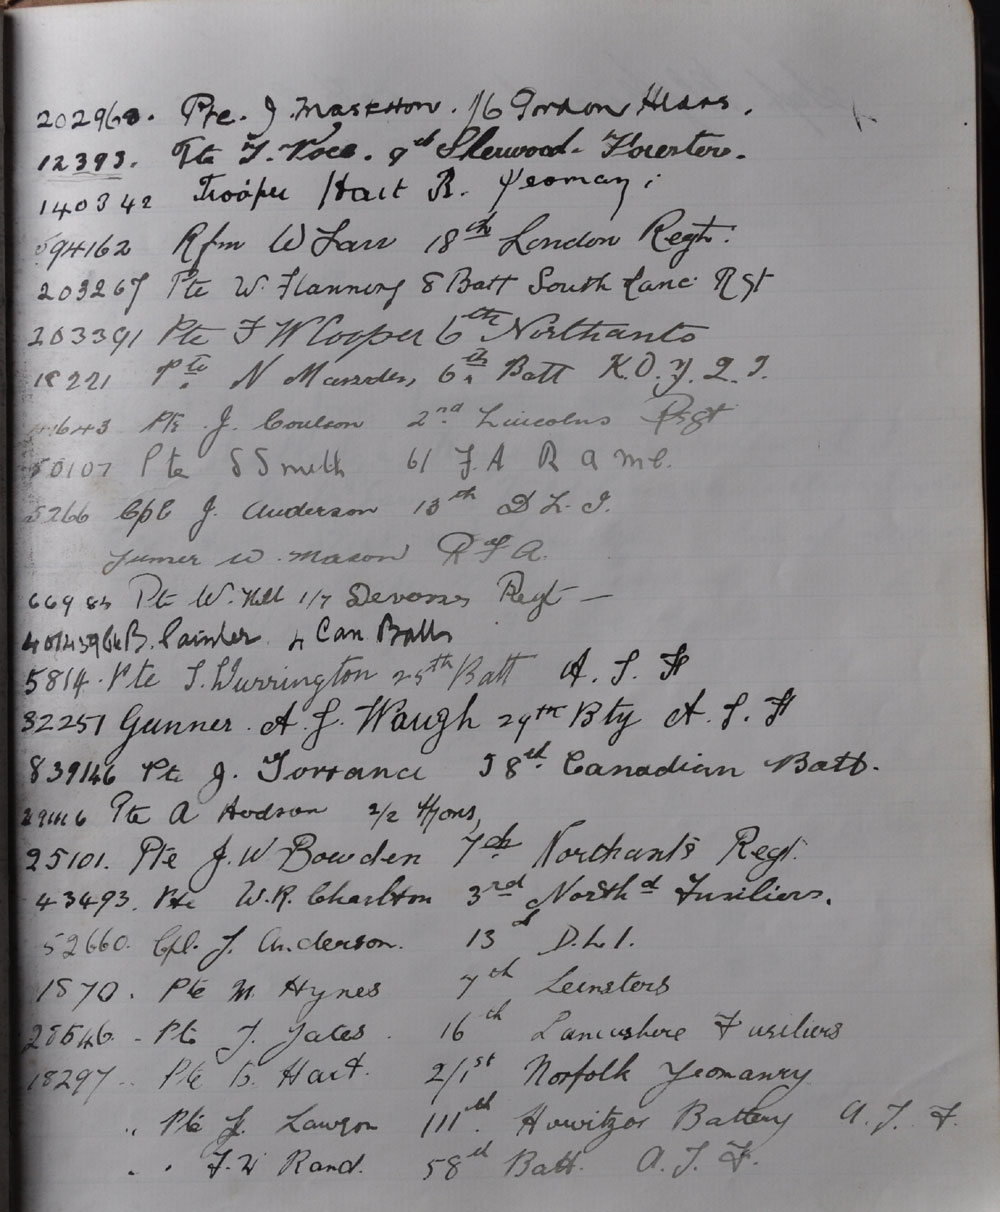 202968. Pte. J. Maskton. 1/6 Gordon Hldrs.
12393. Pte T. Voce. 9th Sherwood-Foresters.
140342 Trooper Hart R. Yeomany;
594162 Rfm W Farr 18th London Regt.
203267 Pte W. Flannery 8 Batt South Lanc Rgt
203391 Pte F W Cooper 6th Northants
18221 Pte N Marsden, 6th Batt K.O.Y.L.I.
41643 Pte J. Coulson 2nd Lincolns Regt
50107 Pte S Smith 61 F.A R a mc.
5266 Cpl J. Anderson 13th D L. I.
W. Mason R F A.
669 85 Pte W. Hill 1/7 Devons Regt —
B. Painter 4 Can Batt
5814. Pte T. Durrington 25th Batt A. I. F
32251 Gunner. A. J. Waugh 29th Bty A. I. F
839146 Pte J. Torrance 58th Canadian Batt.
Pte A Hudson 2/2
25101. Pte J. W Bowden 7th Northants Regt.
43493. Pte W. R. Charlton 3rd North'd Fusiliers.
52660. Cpl. J. Anderson. 13th D.L.I.
1570. Pte M. Hynes 7th Leinsters
28546. Pte J. Yates. 16th Lancashire Fusiliers
18297 .. Pte G. Hart. 2/1st Norfolk Yeomanry
.. Pte J. Lawson 111th Howitzor Battery A. I. F.
. . F. W Rand. 58th Batt. A. I. F.